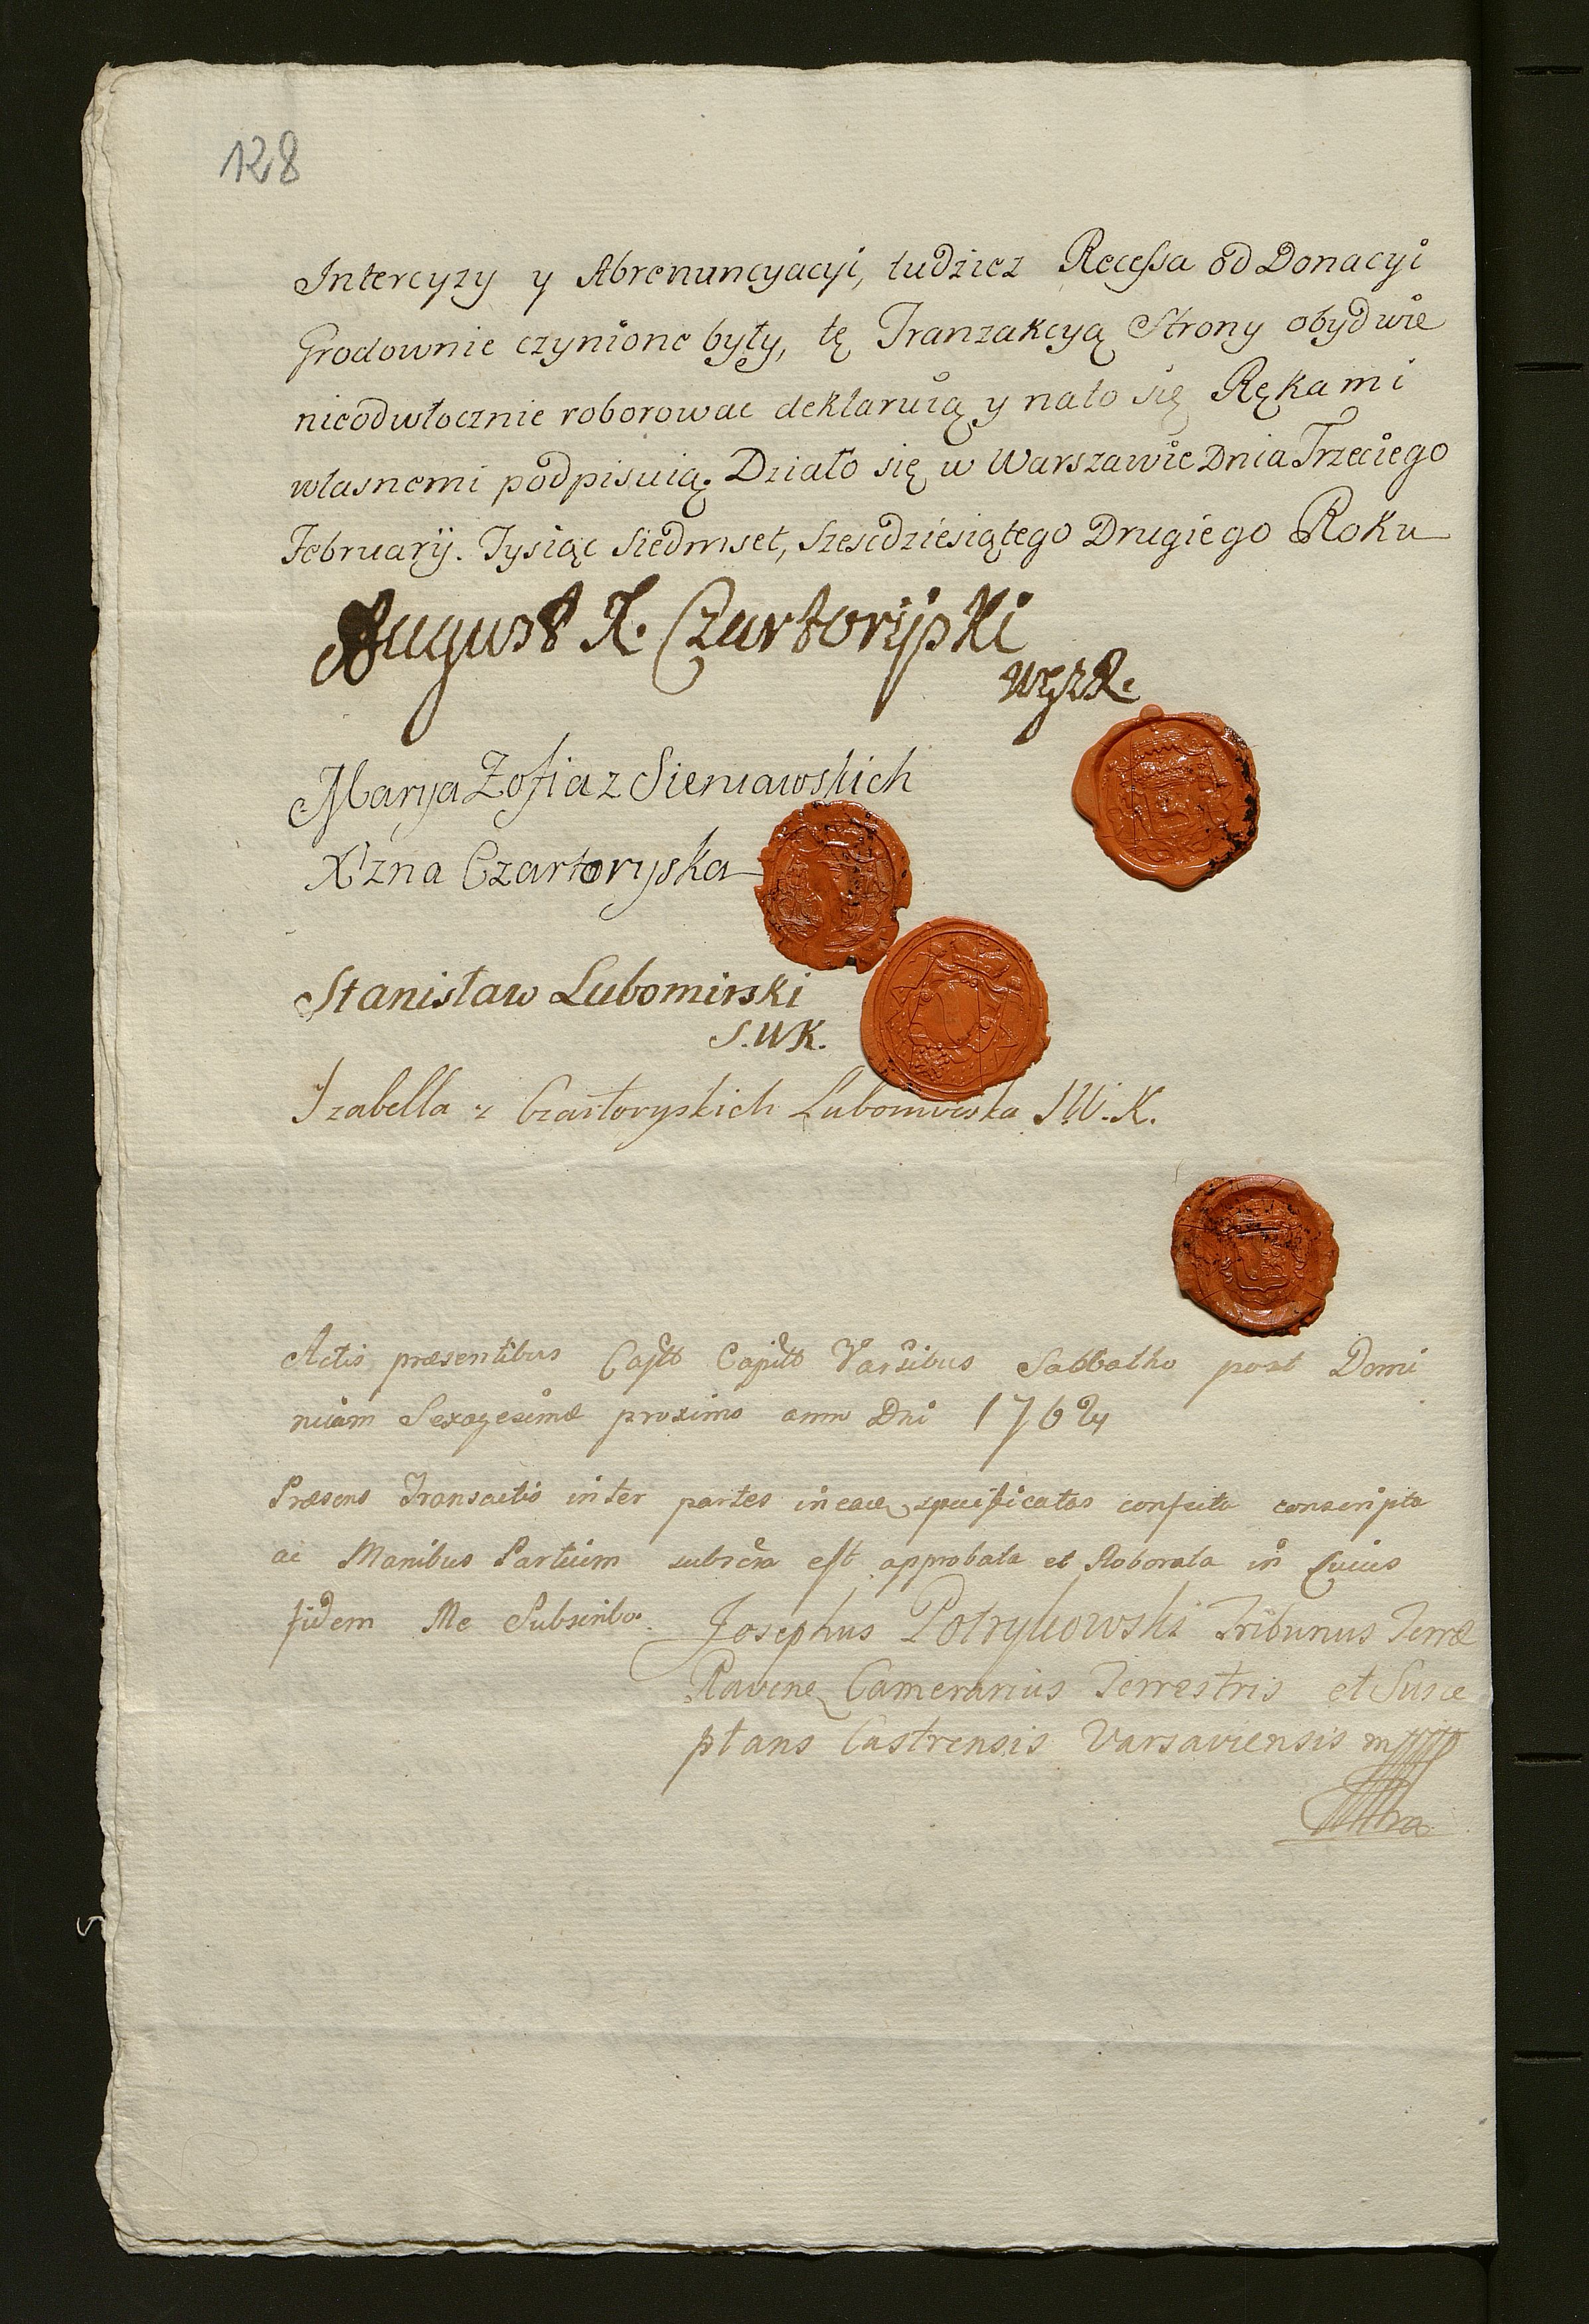 128
Intercyzy y Abrenuncyacyi, tudziez Recessa od Donacyi
Grodownie czynione były, tę Tranzakcyą Strony obydwie
nieodwłocznie roborowac deklaruią y nato się Rękami
własnemi podpisuią. Działo się w Warszawie Dnia Trzeciego
February. Tysiąc Siedmset, szescdziesiątego Drugiego Roku
August X. Czartoryski
WZR.
Marya Zofia z Sieniawskich
X'zna Czartoryska
Stanisław Lubomirski
S.WK.
Izabella z Czartoryskich Lubomirska S W. K.
Actis præsentibus Castr Capit Varsibus Sabbatho post Domi
nicam Sexagesimæ proximo anno Dni 1762
Præsens Transactio inter partes in eaę specificatas confecta conscripta
ac Manibus Partium subscra est approbata et Roborata in Cuius
fidem Me Subscribo. Josephus Potrykowski Tribunus Terræ
Ravenę Camerarius Terrestris et Susce
ptans Castrensis Varsaviensis mpp